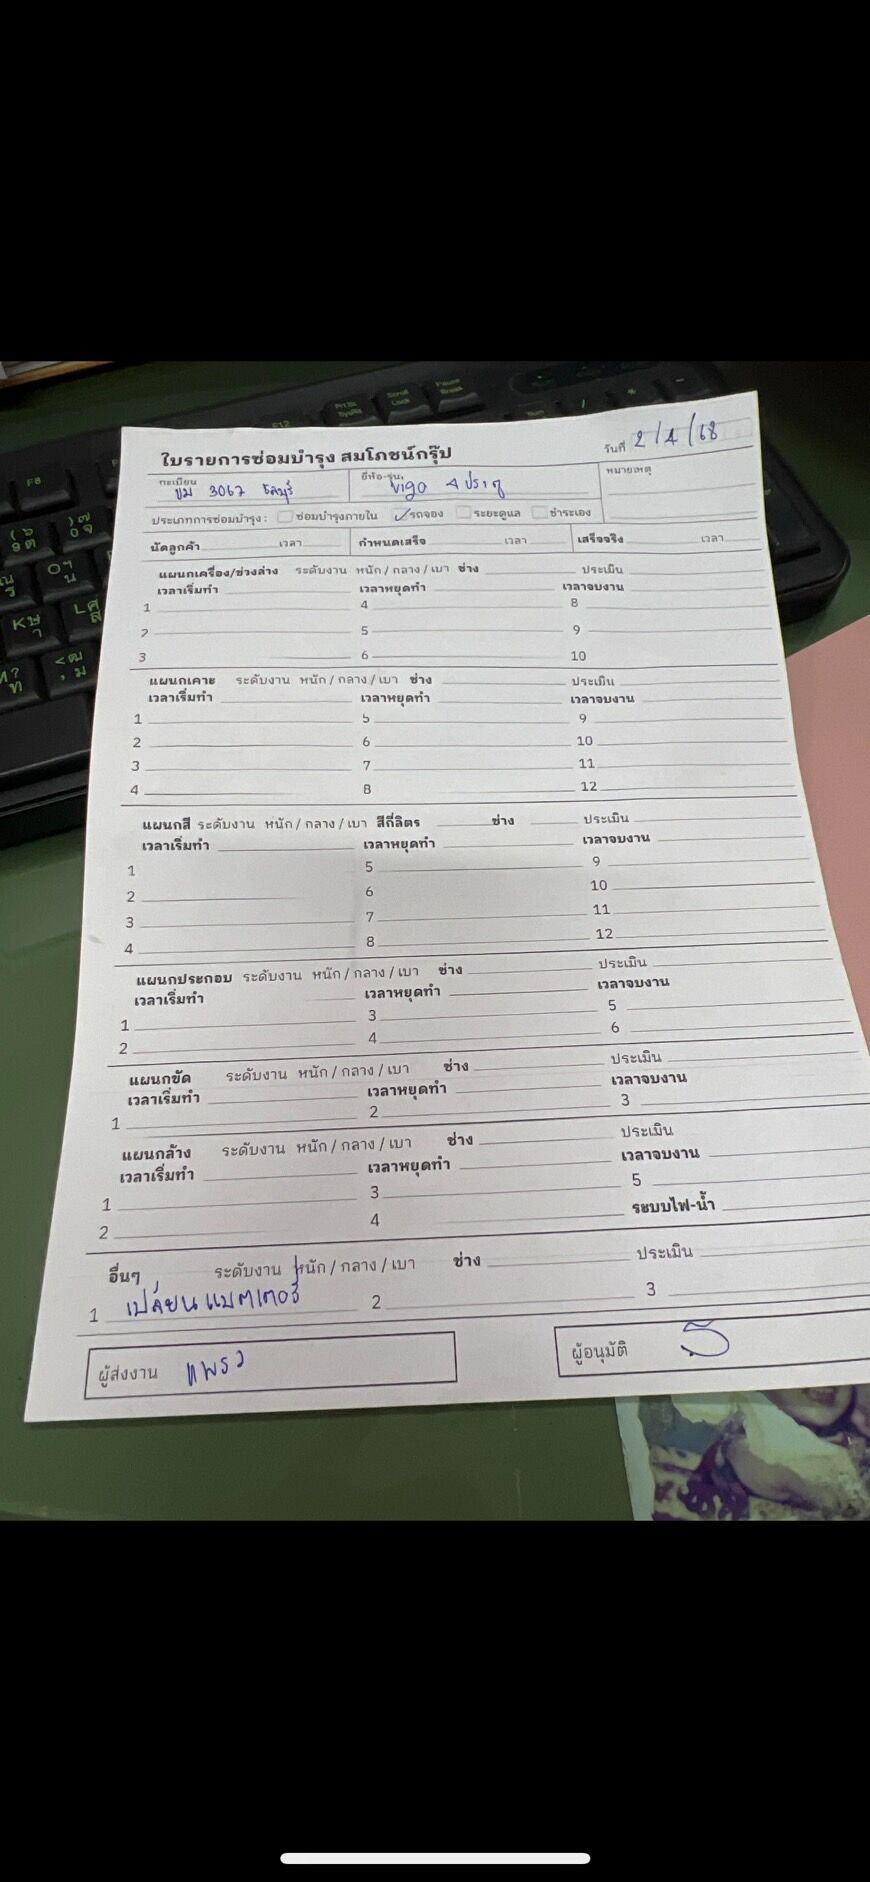 ใบรายการซ่อมบำรุง สมโภชน์กรุ๊ป วันที่ 2/4/68
ทะเบียน ขม 3067 ชลบุรี ยี่ห้อ-รุ่น Vigo 4 ประตู หมายเหตุ
ประเภทการซ่อมบำรุง : ซ่อมบำรุงภายใน ✓ รถจอง ระยะดูแล ชำระเอง
นัดลูกค้า เวลา กำหนดเสร็จ เวลา เสร็จจริง เวลา
แผนกเครื่อง/ช่วงล่าง ระดับงาน หนัก / กลาง / เบา ช่าง ประเมิน
เวลาเริ่มทำ เวลาหยุดทำ เวลาจบงาน
1 4 8
2 5 9
3 6 10
แผนกเคาะ ระดับงาน หนัก / กลาง / เบา ช่าง ประเมิน
เวลาเริ่มทำ เวลาหยุดทำ เวลาจบงาน
1 5 9
2 6 10
3 7 11
4 8 12
แผนกสี ระดับงาน หนัก / กลาง / เบา สีกี่ลิตร ช่าง ประเมิน
เวลาเริ่มทำ เวลาหยุดทำ เวลาจบงาน
1 5 9
2 6 10
3 7 11
4 8 12
แผนกประกอบ ระดับงาน หนัก / กลาง / เบา ช่าง ประเมิน
เวลาเริ่มทำ เวลาหยุดทำ เวลาจบงาน
1 3 5
2 4 6
แผนกขัด ระดับงาน หนัก / กลาง / เบา ช่าง ประเมิน
เวลาเริ่มทำ เวลาหยุดทำ เวลาจบงาน
1 2 3
แผนกล้าง ระดับงาน หนัก / กลาง / เบา ช่าง ประเมิน
เวลาเริ่มทำ เวลาหยุดทำ เวลาจบงาน
1 3 5
2 4 ระบบไฟ-น้ำ
อื่นๆ ระดับงาน หนัก / กลาง / เบา ช่าง ประเมิน
1 เปลี่ยนแบตเตอรี่ 2 3
ผู้ส่งงาน แพรว ผู้อนุมัติ